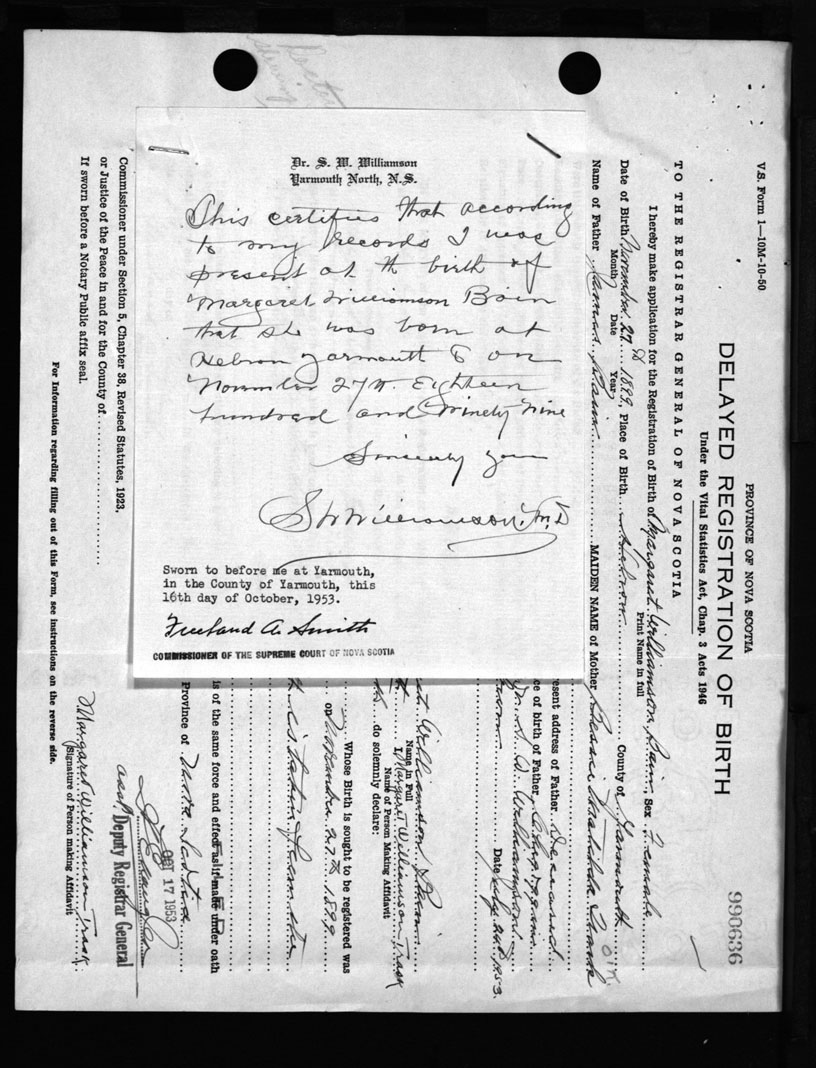 Doctor
V.S. Form 1—10M-10-50
PROVINCE OF NOVA SCOTIA
DELAYED REGISTRATION OF BIRTH
990636
Under the Vital Statistics Act, Chap. 3 Acts 1946
TO THE REGISTRAR GENERAL OF NOVA SCOTIA
I hereby make application for the Registration of Birth of Margaret Williamson Bain Sex Female
Print Name in full
Date of Birth November 27th 1899, Place of Birth Hebron County of Yarmouth
Month Date Year
Name of Father James Bain MAIDEN NAME of Mother
resent address of Father Deceased
ce of birth of Father
Dr. S. W. Williamson
Date July 1953
Dr. S. W. Williamson
Yarmouth North, N.S.
This certifies that according
to my records I was
present at th birth of
Margaret Williamson Bain
that she was born at
Hebron Yarmouth Co on
November 27th. Eighteen
hundred and Ninety Nine
Sincerely your
S W Williamson, M.D
Sworn to before me at Yarmouth,
in the County of Yarmouth, this
16th day of October, 1953.
Freeland A. Smith
COMMISSIONER OF THE SUPREME COURT OF NOVA SCOTIA
et Williamson Bain
Name in Full
I, Margaret Williamson Trask
Name of Person Making Affidavit
do solemnly declare:
Whose Birth is sought to be registered was
on November 27th 1899
is of the same force and effect as if made under oath
Province of Nova Scotia
OCT 17 1953
asst Deputy Registrar General
Commissioner under Section 5, Chapter 38, Revised Statutes, 1923,
or Justice of the Peace in and for the County of
If sworn before a Notary Public affix seal.
Margaret Williamson Trask
(Signature of Person making Affidavit
For Information regarding filling out of this Form, see instructions on the reverse side.